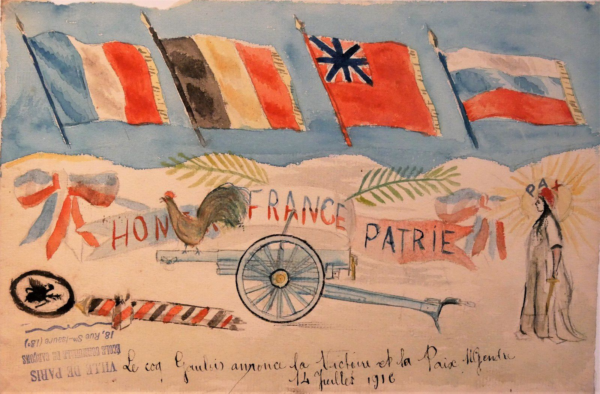 PAX
HON FRANCE PATRIE
Le coq Gaulois annonce la Victoire et la Paix
14 Juillet 1916
VILLE DE PARIS
ÉCOLE COMMUNALE DE GARÇONS
18, Rue Ste-Isaure (18e)